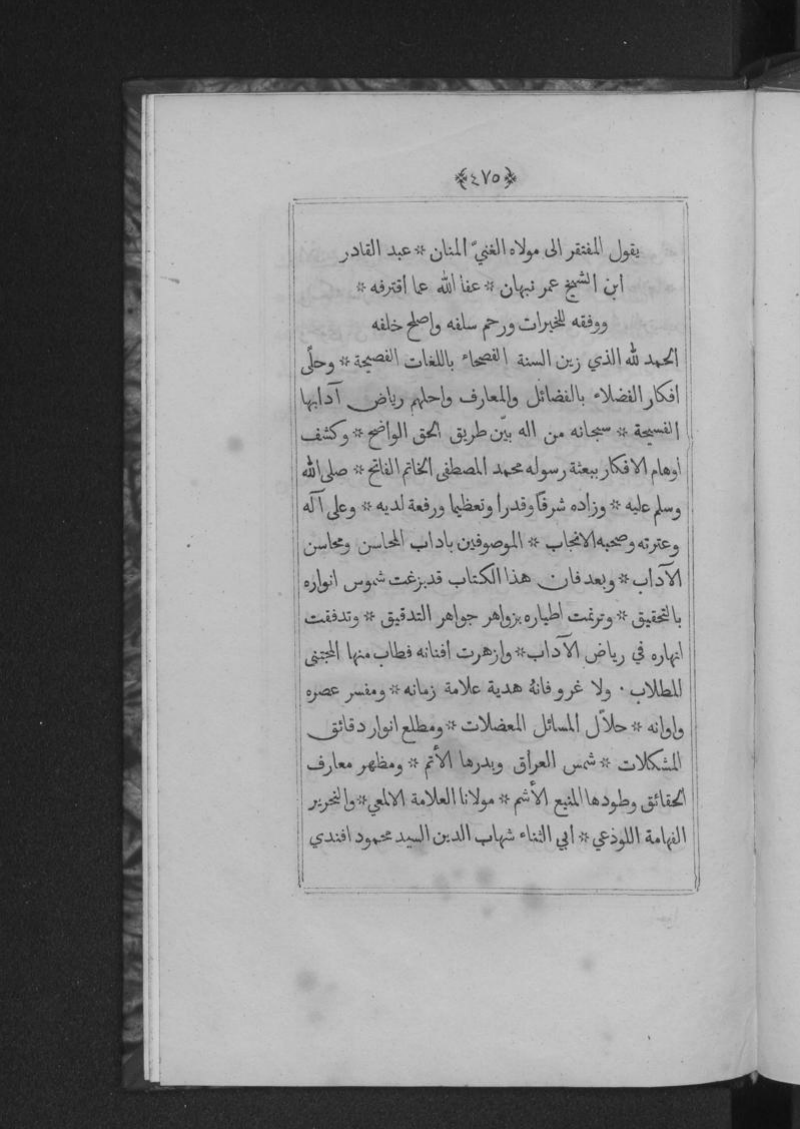 ﴿٤٧٥﴾
يقول المفتقر الى مولاه الغنيّ المنان * عبد القادر
ابن الشيخ عمر نبهان * عفا الله عما اقترفه *
ووفقه للخيرات ورحم سلفه واصلح خلفه
الحمد لله الذي زين السنة الفصحاء باللغات الفصيحة * وحلّى
افكار الفضلاء بالفضائل والمعارف واحلهم رياض آدابها
الفسيحة * سبحانه من اله بيّن طريق الحق الواضح * وكشف
اوهام الافكار ببعثة رسوله محمد المصطفى الخاتم الفاتح * صلى الله
وسلم عليه * وزاده شرفًا وقدرا وتعظيما ورفعة لديه * وعلى آله
وعترته وصحبه الانجاب * الموصوفين باداب المحاسن ومحاسن
الآداب * وبعد فان هذا الكتاب قد بزغت شموس انواره
بالتحقيق * وترنمت اطياره بزواهر جواهر التدقيق * وتدفقت
انهاره في رياض الآداب * وازهرت افنانه فطاب منها المجتنى
للطلاب · ولا غرو فانهُ هدية علامة زمانه * ومفسر عصره
واوانه * حلاّل المسائل المعضلات * ومطلع انوار دقائق
المشكلات * شمس العراق وبدرها الأتم * ومظهر معارف
الحقائق وطودها المنيع الأشم * مولانا العلامة الالمعي * والنحرير
الفهامة اللوذعي * ابي الثناء شهاب الدين السيد محمود افندي